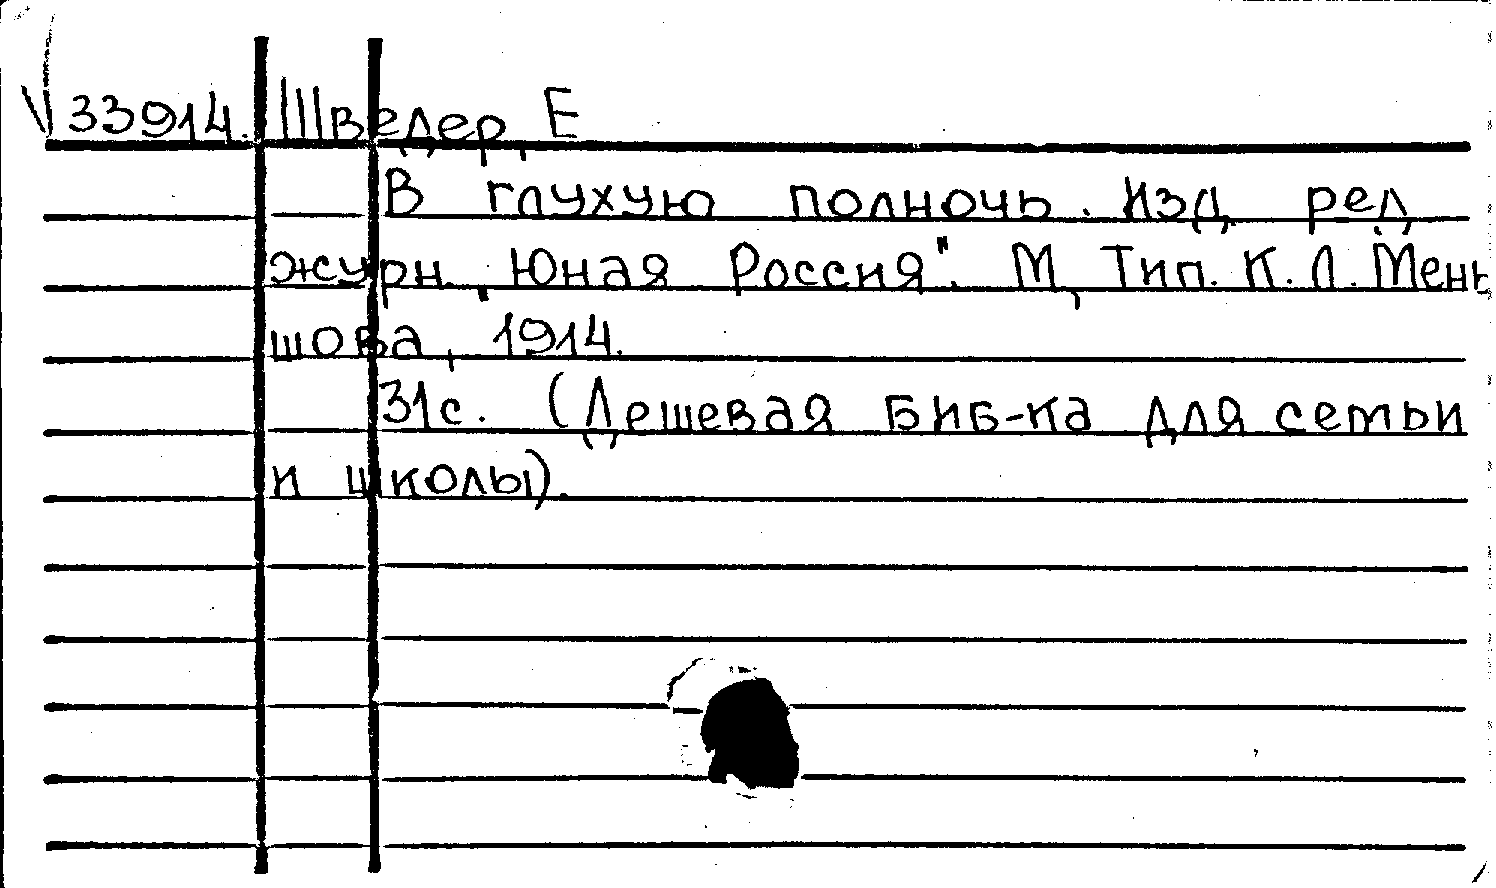 33914. Шведер, Е
В глухую полночь. Изд. ред
журн. „Юная Россия". М, Тип. К. Л. Мень
шова, 1914.
31с. (Дешевая биб-ка для семьи
и школы).